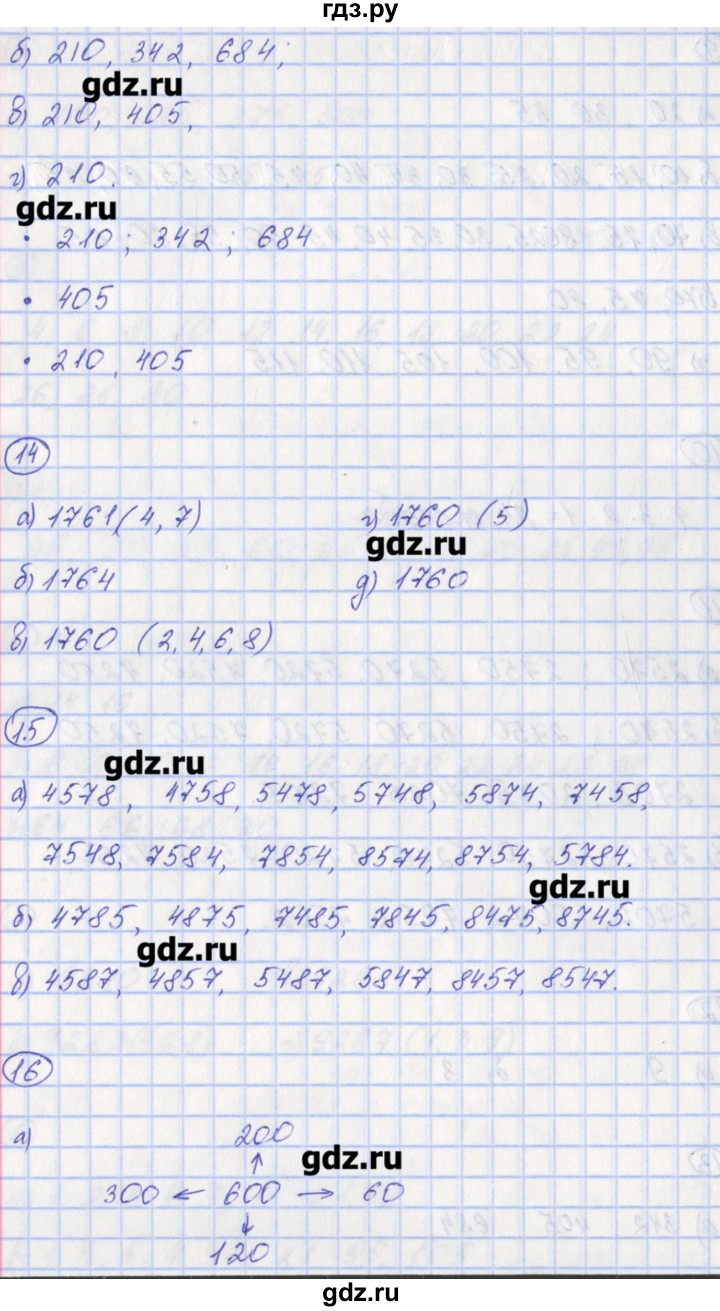 гдз.ру
б) 210, 342, 684;
gdz.ru
в) 210, 405,
г) 210.
gdz.ru
• 210; 342; 684
• 405
• 210, 405
14
а) 1761 (4, 7) г) 1760 (5)
gdz.ru
б) 1764 д) 1760
в) 1760 (2, 4, 6, 8)
15
gdz.ru
а) 4578, 4758, 5478, 5748, 5874, 7458,
7548, 7584, 7854, 8574, 8754, 5784.
gdz.ru
б) 4785, 4875, 7485, 7845, 8475, 8745.
gdz.ru
в) 4587, 4857, 5487, 5847, 8457, 8547.
16
а) 200
↑ gdz.ru
300 ← 600 → 60
↓
120
gdz.ru